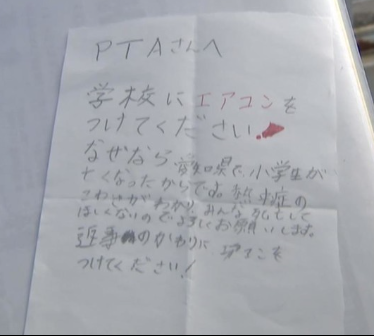 PTAさんへ
学校にエアコンを
つけてください!
なぜなら 愛知県で、小学生が
亡くなったからです。熱中症の
こわさがわかり、みんな 死亡して
ほしくないので お願いします。
のかわりに を
つけてください!